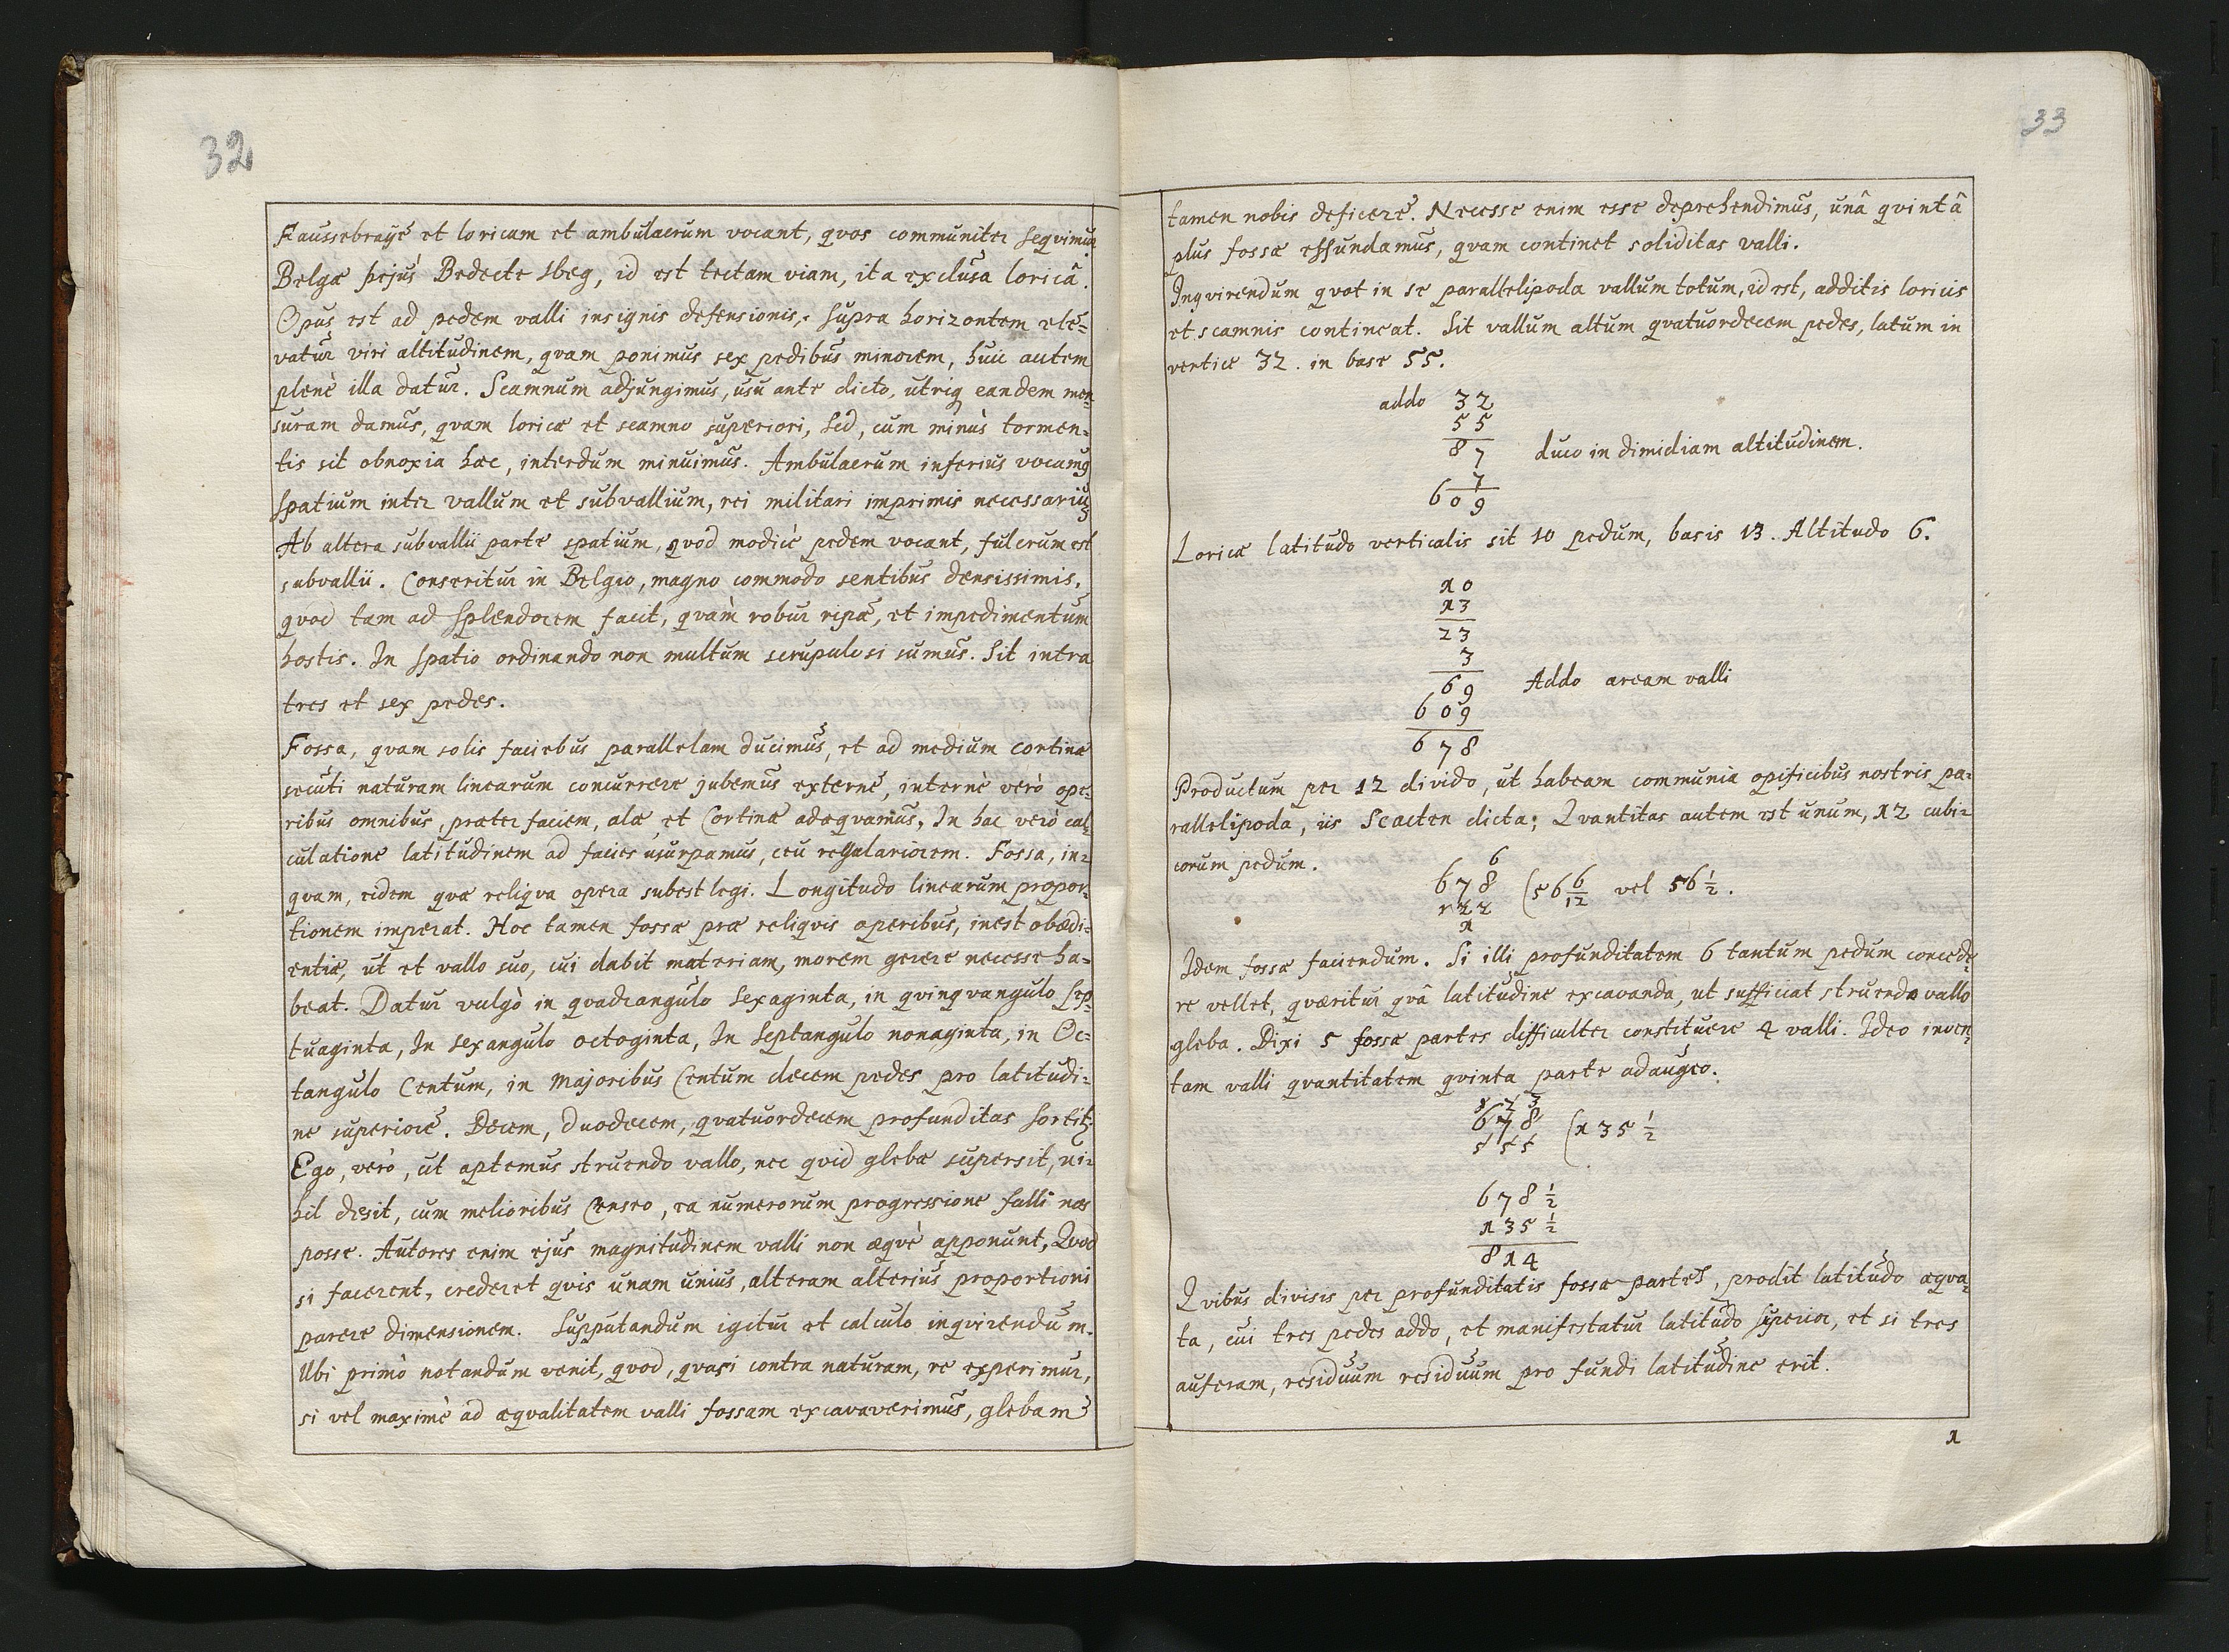 32
Faussebraÿe et loricam et ambulacrum vocant, qvos communiter seqvimur
Belgæ pejus Bedecte Weg, id est tectam viam, ita exclusa loricâ.
Opus est ad pedem valli insignis defensionis, supra horizontem ele=
vatur viri altitudinem, qvam ponimus sex pedibus minorem, huic autem
plenè illa datur. Scamnum adjungimus, usu ante dicto, utriq eandem men=
suram damus, qvam loricæ et scamno superiori, sed, cum minùs tormen=
tis sit obnoxia hæc, interdum minuimus. Ambulacrum inferius vocamq
spatium inter vallum et subvallium, rei militari imprimis necessariuʒ
Ab altera subvallii parte spatium, qvod modicè pedem vocant, fulcrum est
subvallii. Conseritur in Belgio, magno commodo sentibus densissimis,
qvod tam ad splendorem facit, qvàm robur ripæ, et impedimentum
hostis. In spatio ordinando non multum scrupulosi sumus. Sit intra
tres et sex pedes.
Fossa, qvam solis faciebus parallelam ducimus, et ad medium cortinæ
secuti naturam linearum concurrere jubemus externè, internè verò ope=
ribus omnibus, præter faciem, alæ et Cortinæ adæqvamus. In hac verò cal=
culatione latitudinem ad facies usurpamus, ceu regulariorem. Fossa, in=
qvam, eidem qva reliqva opera subest legi. Longitudo linearum propor=
tionem imperat. Hoc tamen fossæ præ reliqvis operibus, inest obædi=
entiæ, ut et vallo suo, cui dabit materiam, morem gerere necesse ha=
beat. Datur vulgò in qvadrangulo sexaginta, in qvinqvangulo sep=
tuaginta, In sexangulo octoginta, In septangulo nonaginta, in Oc=
tangulo Centum, in majoribus Centum decem pedes pro latitudi=
ne superiore. Decem, duodecem, qvatuordecem profunditas sortit;
Ego, verò, ut aptemus struendo vallo, nec qvid glebæ supersit, ni=
hil desit, cum melioribus Censeo, ea numerorum progressione falli nos
posse. Autores enim ejus magnitudinem valli non æqvè apponunt, Qvod
si facerent, crederet qvis unam unius, alteram alterius proportioni
parere dimensionem. Supputandum igitur et calculo inqvirendum.
Ubi primò notandum venit, qvod, qvasi contra naturam, re experimur,
si vel maximè ad æqvalitatem valli fossam excavaverimus, glebam
33
tamen nobis deficere. Necesse enim esse deprehendimus, unâ qvintâ
plus fossæ effundamus, qvam continet soliditas valli.
Inqvirendum qvot in se parallelipoda vallum totum, id est, additis loricis
et scamnis contineat. Sit vallum altum qvatuordecem pedes, latum in
vertice 32. in base 55.
addo 32
55
87 duco in dimidiam altitudinem.
7
609
Loricæ latitudo verticalis sit 10 pedum, basis 13. Altitudo 6.
10
13
23
3
69 Addo aream valli
609
678
Productum per 12 divido, ut habeam communia opificibus nostris pa=
rallelipoda, iis Scacten dicta; Qvantitas autem est unum, 12 cubi=
corum pedum.
6
678 (56 6/12 vel 56 1/2.
122
1
Idem fossæ faciendum. Si illi profunditatem 6 tantum pedum concede=
re vellet, qværitur qvâ latitudine excavanda, ut sufficiat struendo vallo
gleba. Dixi 5 fossæ partes difficulter constituere 4 valli. Ideo inven=
tam valli qvantitatem qvinta parte adaugeo.
1 2 3
678 (135 1/2
555
678 1/2
135 1/2
814
Qvibus divisis per profunditatis fossæ partes, prodit latitudo æqva=
ta, cui tres pedes addo, et manifestatur latitudo superior, et si tres
auferam, residuum residuum pro fundi latitudine erit.
1